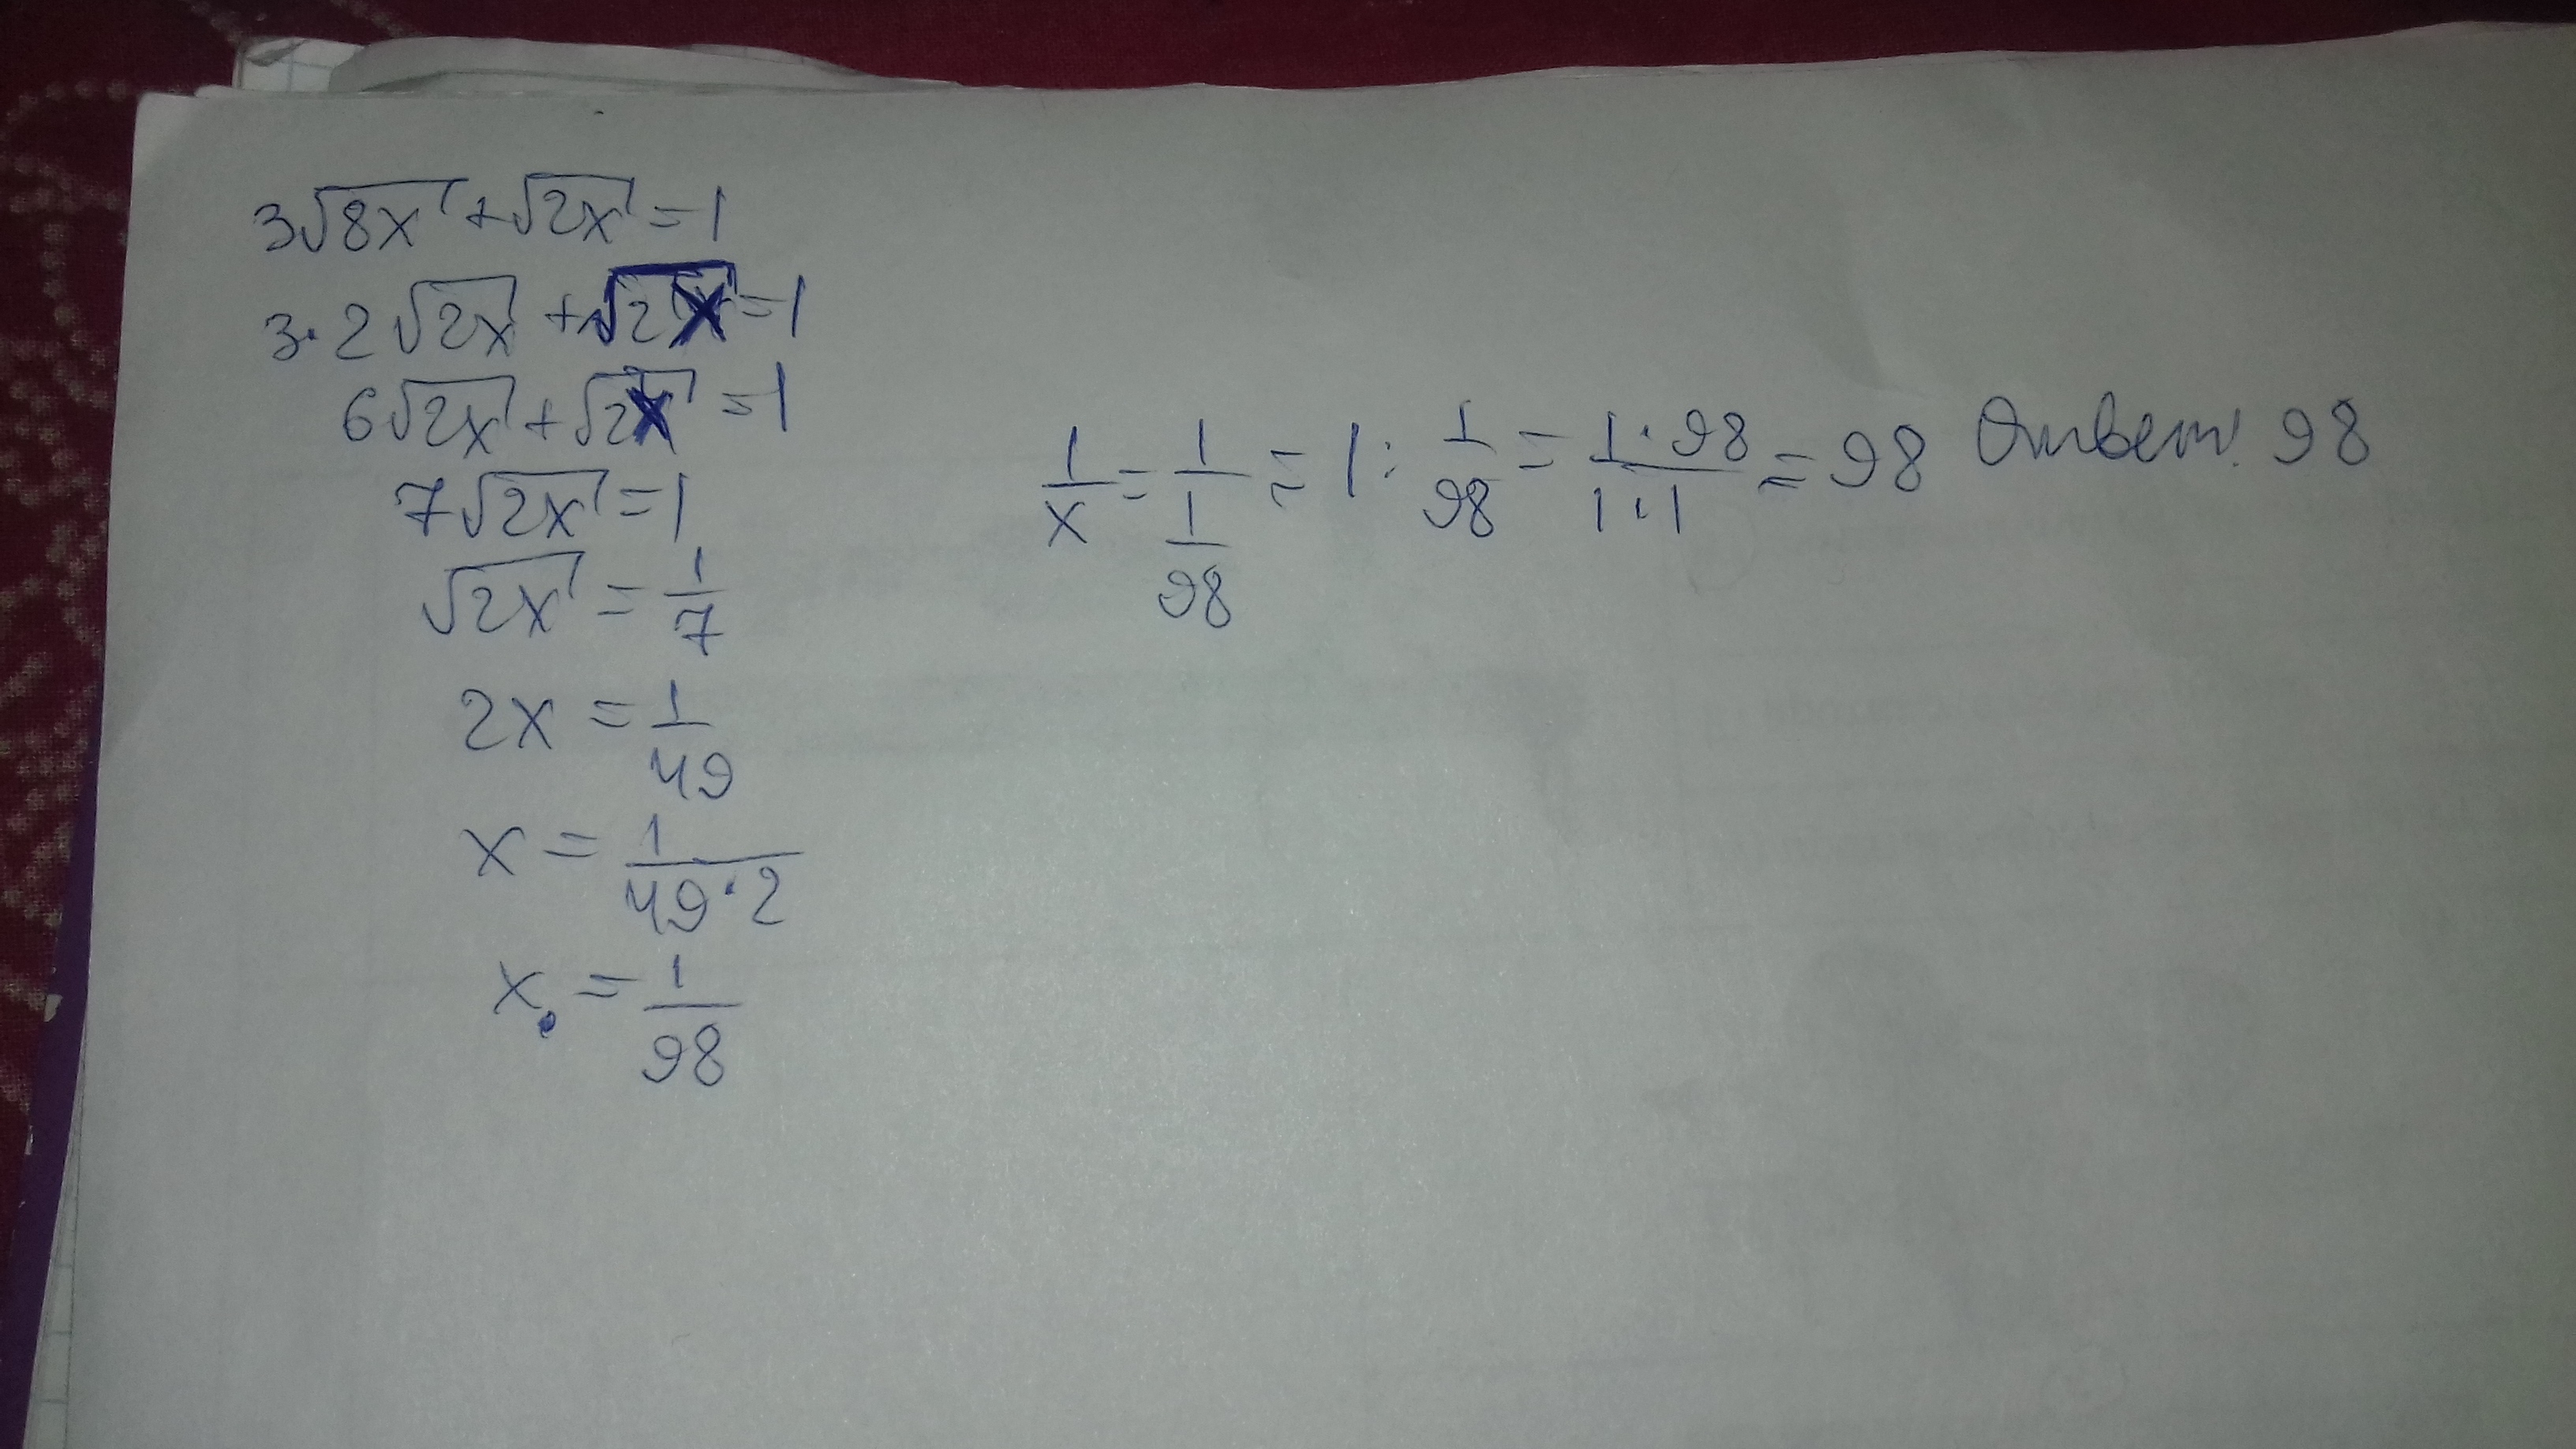 3√8x + √2x = 1
3·2√2x + √2x = 1
6√2x + √2x = 1
7√2x = 1
√2x = 1/7
2x = 1/49
x = 1/(49·2)
x = 1/98
1/x = 1/(1/98) = 1 : 1/98 = (1·98)/(1·1) = 98 Ответ: 98